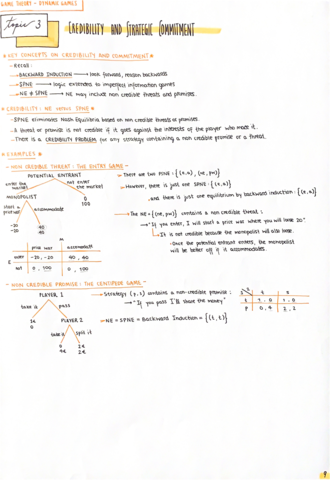 GAME THEORY - DYNAMIC GAMES
topic 3
CREDIBILITY AND STRATEGIC COMMITMENT
* KEY CONCEPTS ON CREDIBILITY AND COMMITMENT *
- Recall:
→ BACKWARD INDUCTION → look forward, reason backwards
→ SPNE → logic extended to imperfect information games
→ NE ≠ SPNE → NE may include non credible threats and promises.
* CREDIBILITY: NE versus SPNE *
- SPNE eliminates Nash Equilibria based on non credible threats or promises.
- A threat or promise is not credible if it goes against the interests of the player who made it.
- There is a CREDIBILITY PROBLEM for any strategy containing a non credible promise or a threat.
* EXAMPLES *
- NON CREDIBLE THREAT: THE ENTRY GAME -
POTENTIAL ENTRANT
enter the market
not enter the market
MONOPOLIST
0
100
start a price war
accommodate
-20
-20
40
40
→ There are two PSNE: {(e,a), (ne,pw)}
→ However, there is just one SPNE: {(e,a)}
and there is just one equilibrium by backward induction: {(e,a)}
→ The NE = {(ne,pw)} contains a non credible threat:
→ "If you enter, I will start a price war where you will loose 20"
→ It is not credible because the monopolist will also loose.
- Once the potential entrant enters, the monopolist will be better off if it accommodates.
M
price war accommodate
E
enter -20, -20 40, 40
not 0, 100 0, 100
- NON CREDIBLE PROMISE: THE CENTIPEDE GAME -
PLAYER 1
take it
pass
PLAYER 2
take it
split it
0
4€
2€
2€
→ Strategy (p,s) contains a non-credible promise:
→ "If you pass I'll share the money"
→ NE = SPNE = Backward Induction = {(t,t)}
t s
t 1, 0 1, 0
p 0, 4 2, 2
9